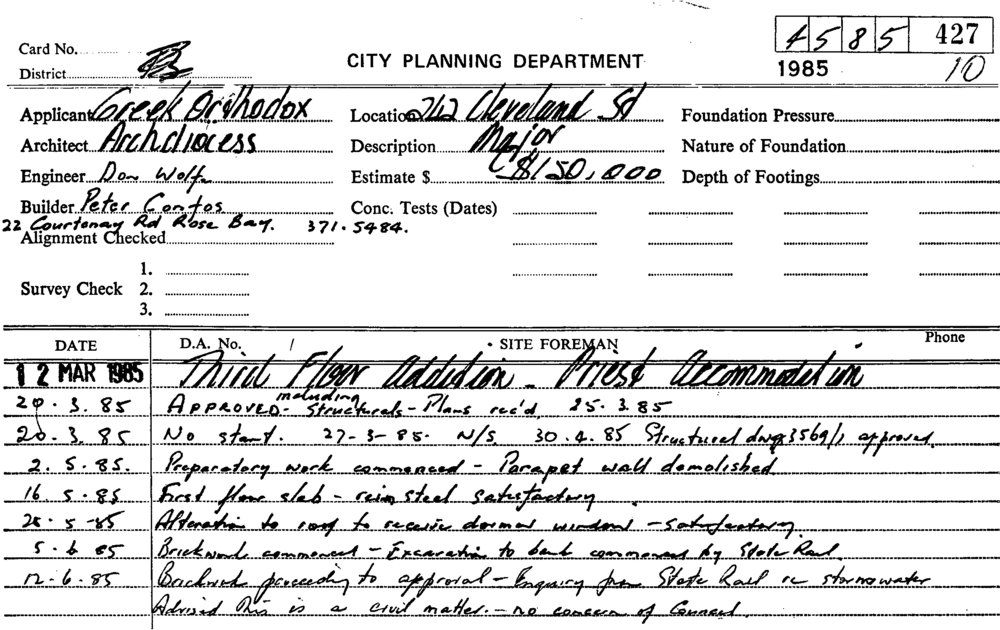 4 5 8 5 427
Card No.
District
CITY PLANNING DEPARTMENT
1985 10
Applicant Greek Orthodox
Location 242 Cleveland St
Foundation Pressure
Architect Archdiocess
Description Major
Nature of Foundation
Engineer Don Wolfe
Estimate $ $150,000
Depth of Footings
Builder Peter Contos
Conc. Tests (Dates)
22 Courtenay Rd Rose Bay. 371.5484.
Alignment Checked
1.
Survey Check 2.
3.
DATE D.A. No. / SITE FOREMAN Phone
12 MAR 1985 Third Floor Addition - Priest Accommodation
20.3.85 APPROVED - including Structurals - Plans rec'd 25.3.85
20.3.85 No start. 27-3-85. N/S 30.4.85 Structural dwgs 3569/1 approved.
2.5.85. Preparatory work commenced - Parapet wall demolished
16.5.85 First floor slab - rein steel satisfactory
28.5-85 Alteration to roof to receive dormer windows - satisfactory.
5.6 85 Brickwork commenced - Excavation to bank commenced by State Rail.
12.6.85 Brickwork proceeding to approval - Enquiry from State Rail re stormwater
Advised this is a civil matter. - no concern of Council.